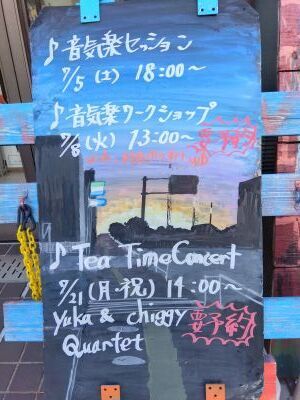 ♪音気楽セッション
7/5 (土) 18:00～
♪音気楽ワークショップ
7/8 (火) 13:00～
要予約
♪Tea Time Concert
7/21 (月・祝) 14:00～
yuka & chiggy
要予約
Quartet